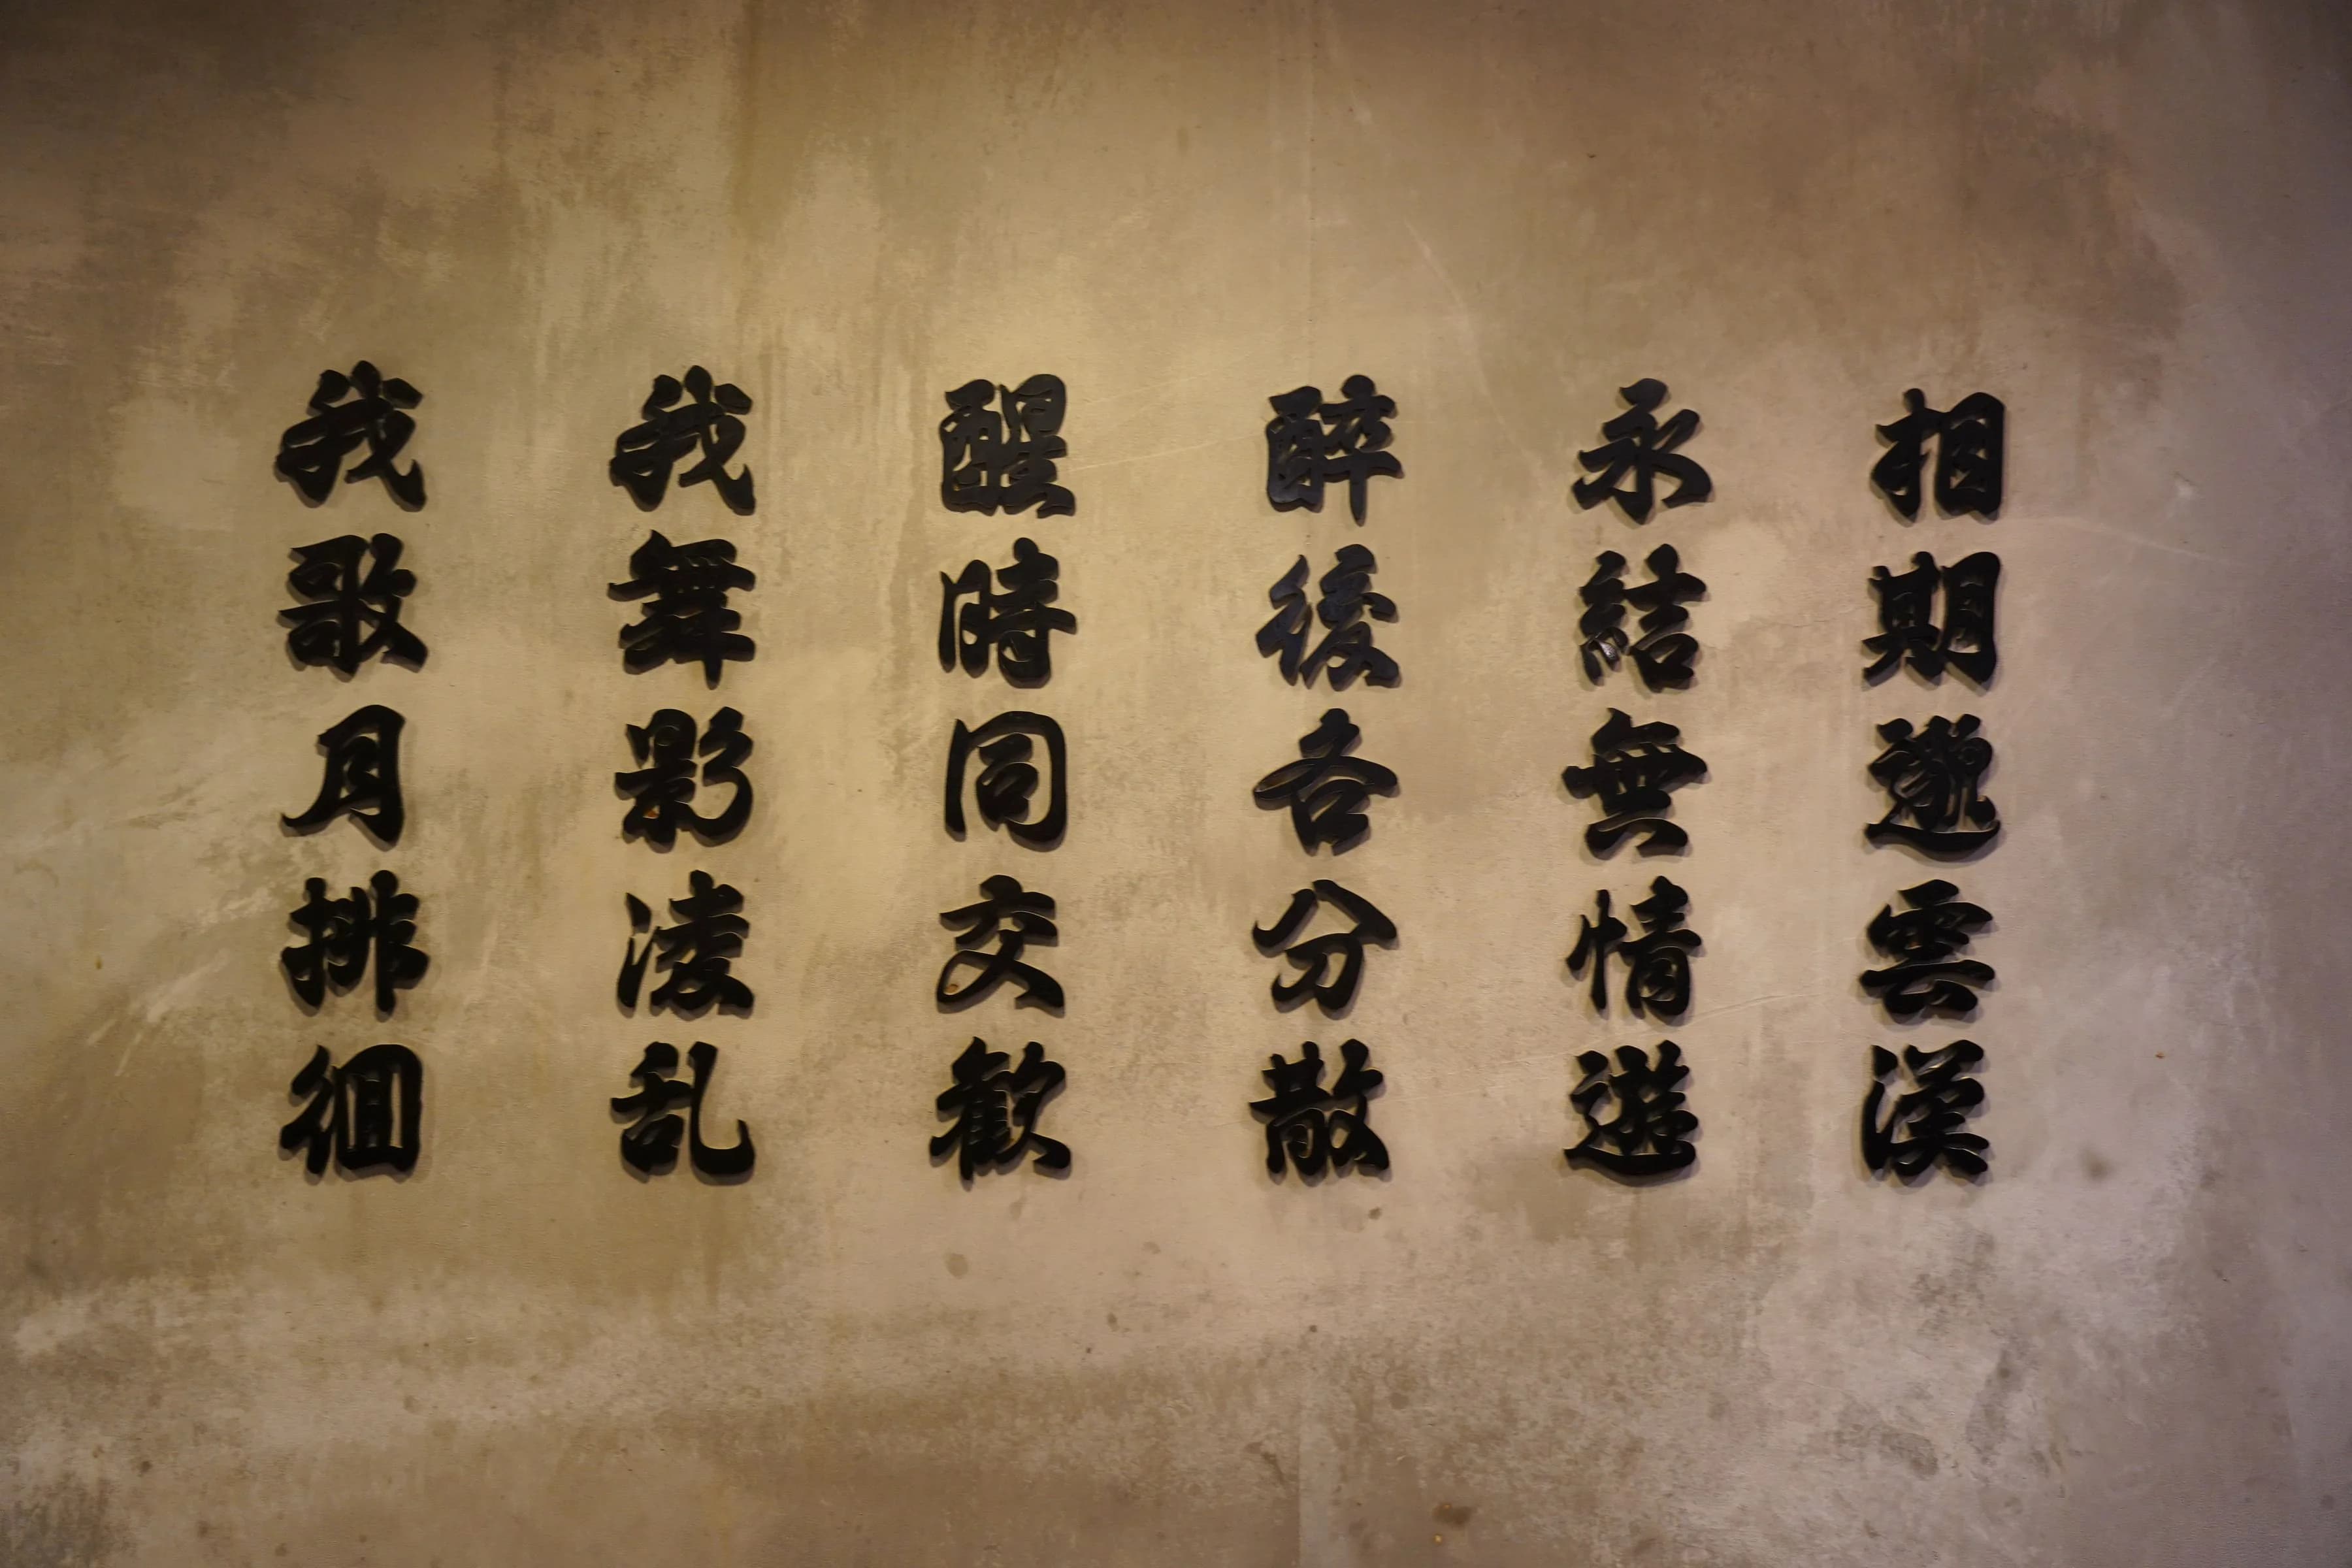 我歌月排徊
我舞影凌乱
醒時同交歓
醉後各分散
永結無情遊
相期邈雲漢